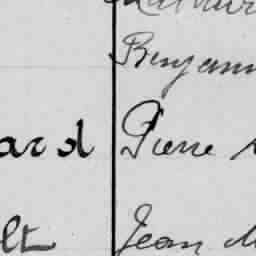 Benjami
ard Pierre
lt Jean M